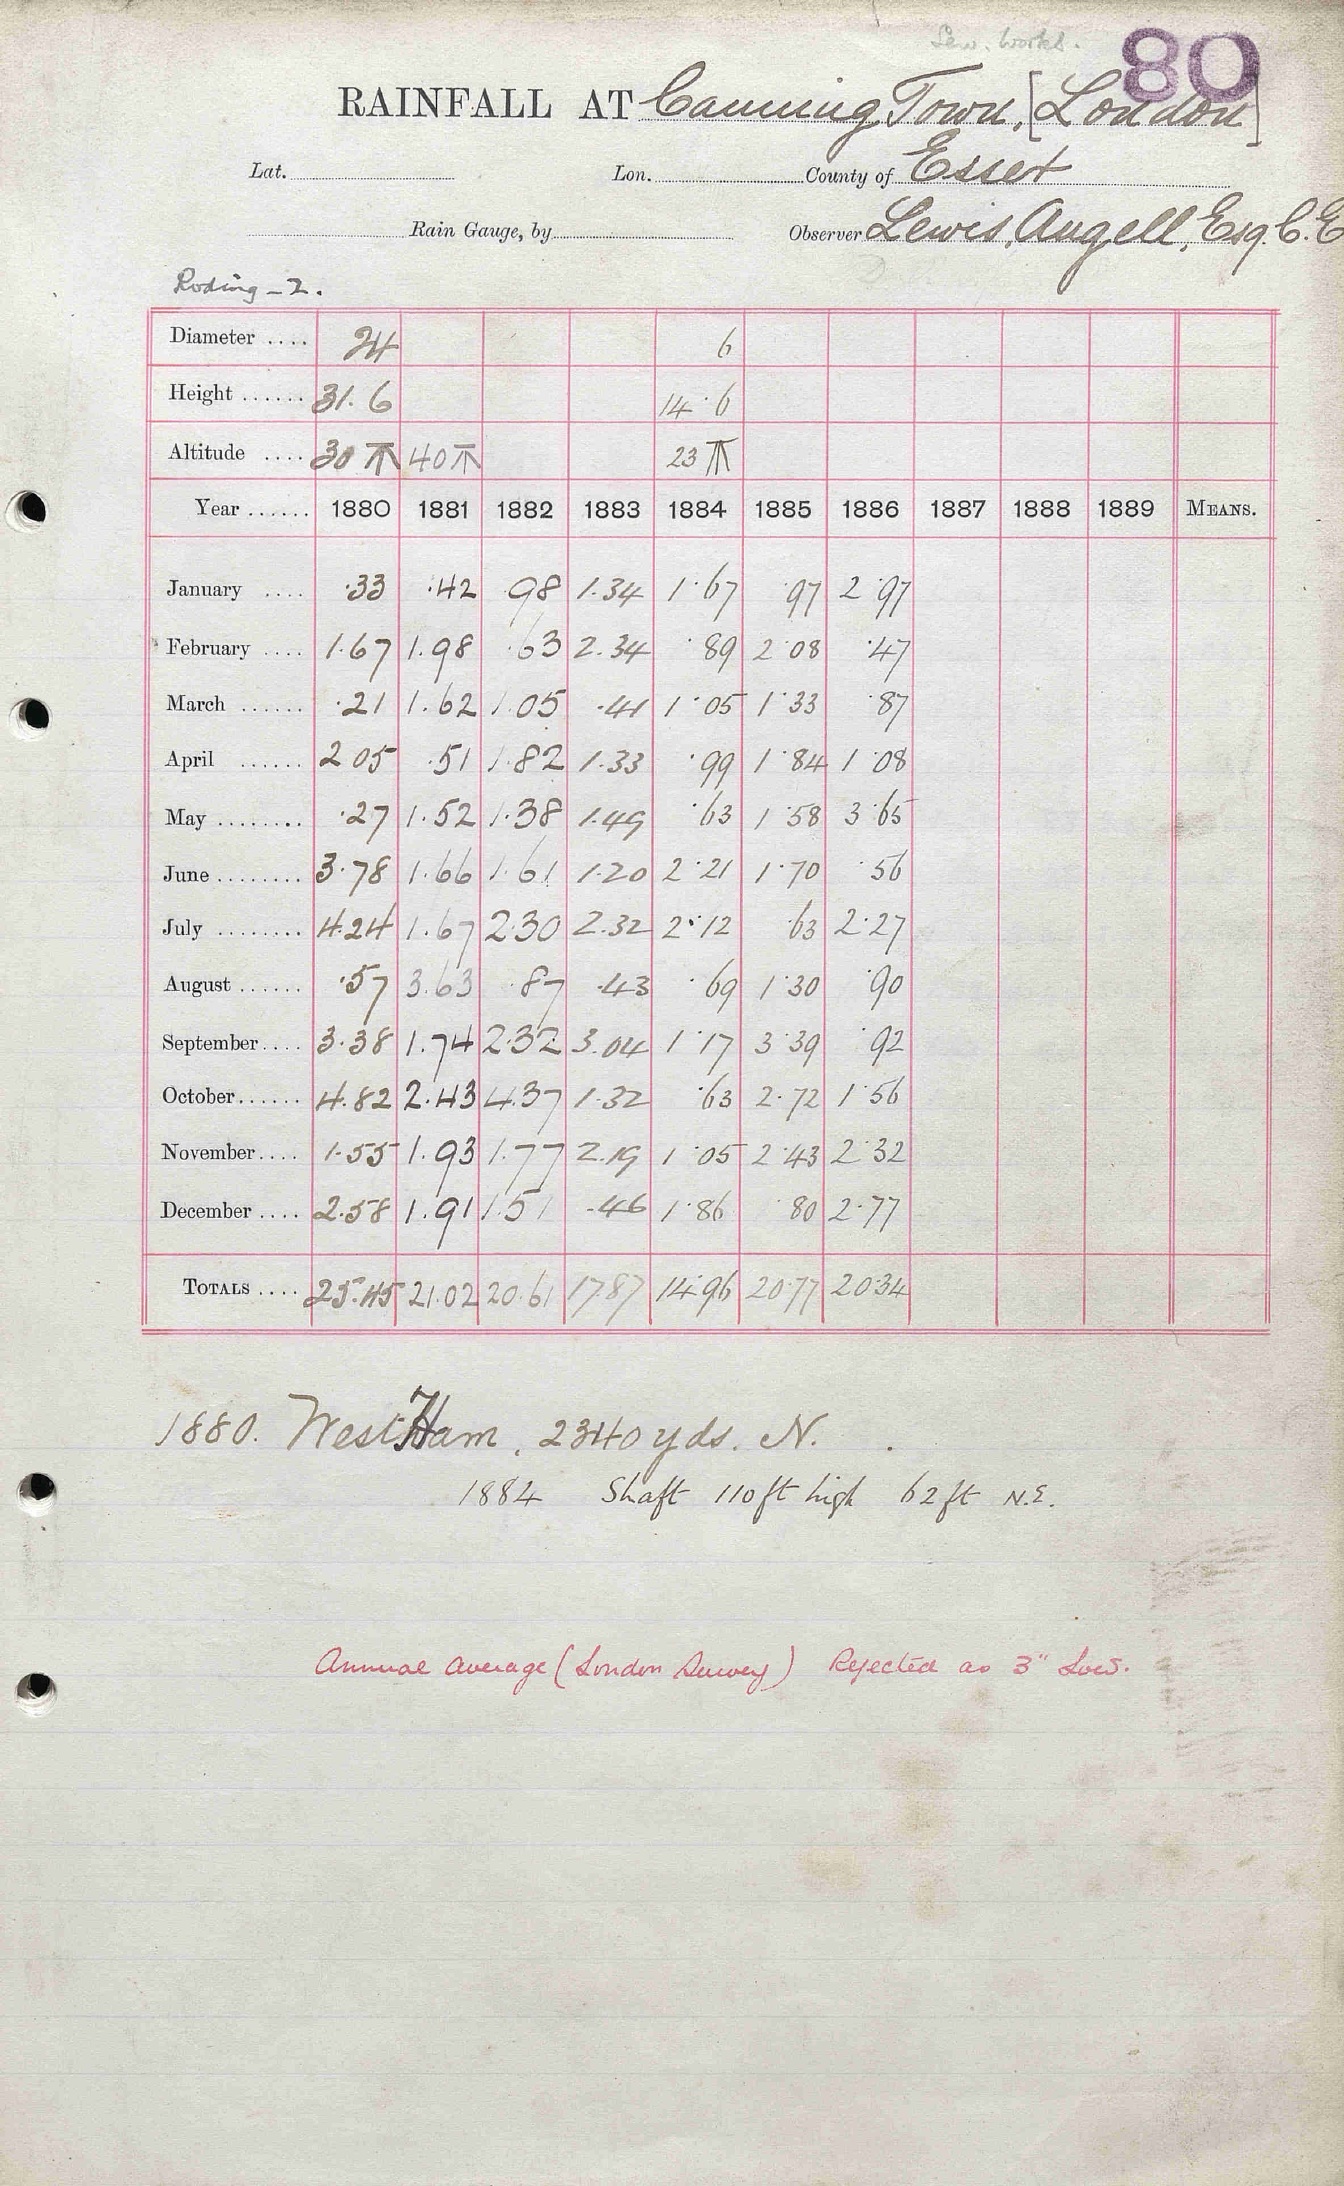 Sew. Works.
80
RAINFALL AT Canning Town, [London]
Lat. Lon. County of Essex
Rain Gauge, by Observer Lewis, Angell, Esq. C.E
Roding - 2.
Diameter .... 24 6
Height ...... 31.6 14.6
Altitude .... 30 40 23
Year ...... 1880 1881 1882 1883 1884 1885 1886 1887 1888 1889 MEANS.
January .... .33 .42 .98 1.34 1.67 .97 2.97
February .... 1.67 1.98 .63 2.34 .89 2.08 .47
March ...... .21 1.62 1.05 .41 1.05 1.33 .87
April ...... 2.05 .51 1.82 1.33 .99 1.84 1.08
May ........ .27 1.52 1.38 1.49 .63 1.58 3.65
June ........ 3.78 1.66 1.61 1.20 2.21 1.70 .56
July ........ 4.24 1.67 2.30 2.32 2.12 .63 2.27
August ...... .57 3.63 .87 .43 .69 1.30 .90
September .... 3.38 1.74 2.32 3.04 1.17 3.39 .92
October ...... 4.82 2.43 4.37 1.32 .63 2.72 1.56
November .... 1.55 1.93 1.77 2.19 1.05 2.43 2.32
December .... 2.58 1.91 1.51 .46 1.86 .80 2.77
TOTALS .... 25.45 21.02 20.61 17.87 14.96 20.77 20.34
1880. West Ham, 2340 yds. N.
1884 Shaft 110 ft high 62 ft N.E.
Annual average (London Survey) Rejected as 3" Low.